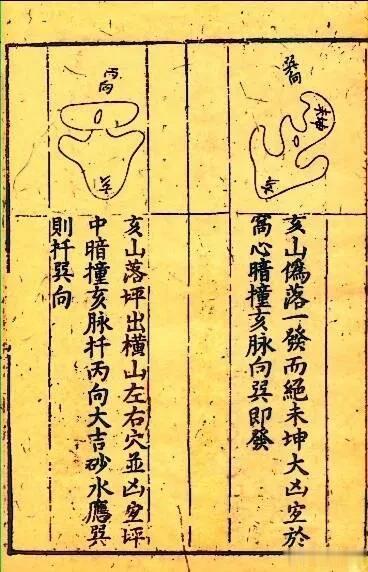 巽向
未坤
亥
亥山偽落一發而絕未坤大凶宜於
窩心暗撞亥脉向巽即發
丙向
亥
亥山落坪出橫山左右穴並凶宜坪
中暗撞亥脉扦丙向大吉砂水應巽
則扦巽向